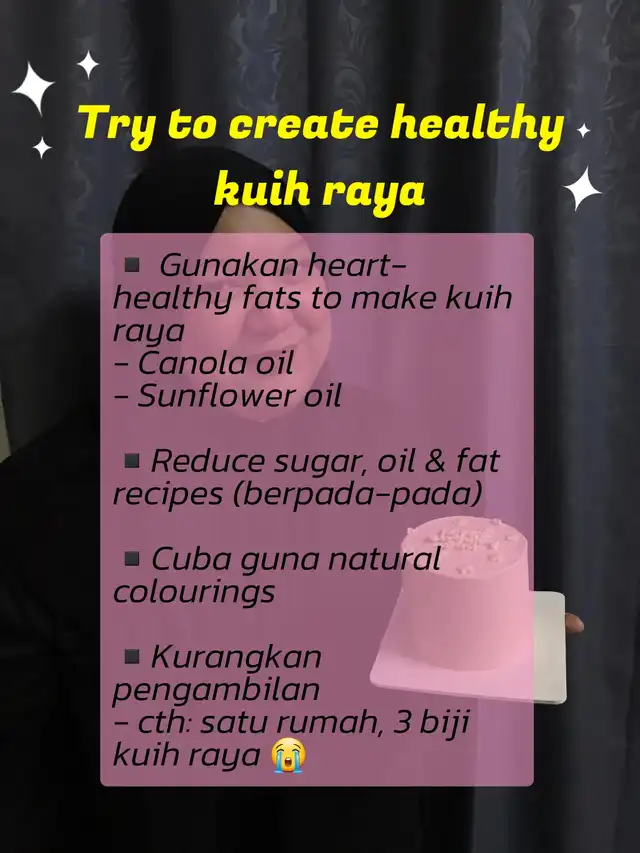 Try to create healthy
kuih raya
▪️ Gunakan heart-
healthy fats to make kuih
raya
- Canola oil
- Sunflower oil
▪️Reduce sugar, oil & fat
recipes (berpada-pada)
▪️Cuba guna natural
colourings
▪️Kurangkan
pengambilan
- cth: satu rumah, 3 biji
kuih raya 😭